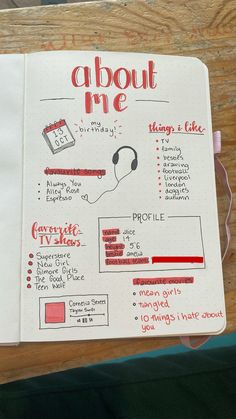 about
me
13
OCT
my
birthday!
things i like
• TV
• family
• besties
• drawing
• football
• liverpool
• london
• doggies
• autumn
favourite songs
• Always You
• Alley Rose
• Espresso
PROFILE
name: alice
age: 14
height: 5'6
bestie: amelia
football team:
favorite
TV shows
• Superstore
• New Girl
• Gilmore Girls
• The Good Place
• Teen Wolf
Cornelia Street
Taylor Swift
favourite movies
• mean girls
• tangled
• 10 things i hate about
you